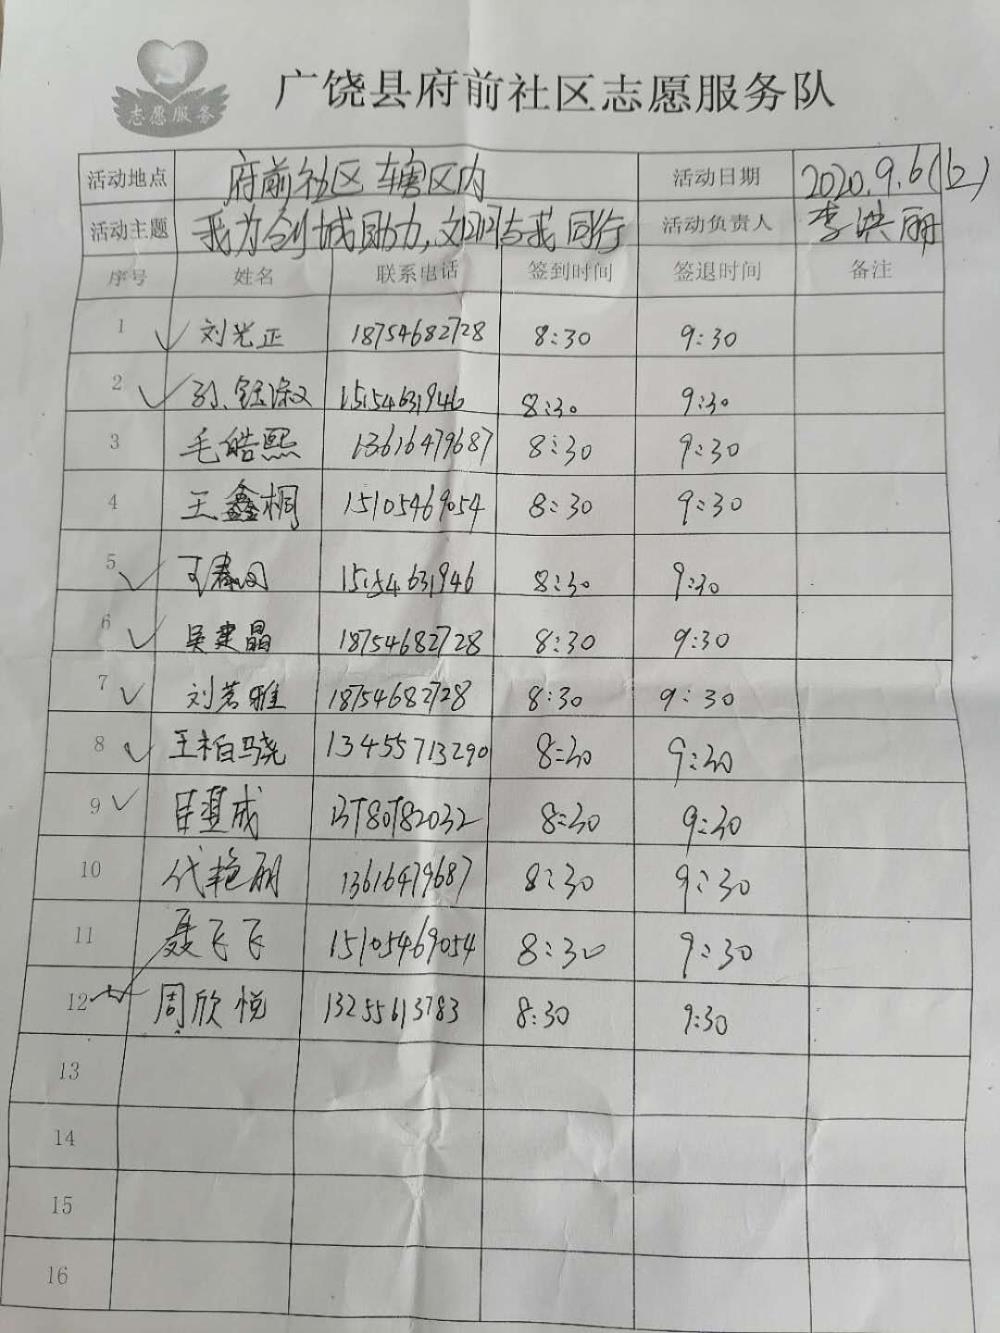 志愿服务
广饶县府前社区志愿服务队
活动地点 府前社区辖区内 活动日期 2020.9.6(12)
活动主题 我为创城助力,文明与我同行 活动负责人 李洪丽
序号 姓名 联系电话 签到时间 签退时间 备注
1 刘光正 18754682728 8:30 9:30
2 孙钰淑 15154631946 8:30 9:30
3 毛皓熙 13616479687 8:30 9:30
4 王鑫桐 15105469054 8:30 9:30
5 15154631946 8:30 9:30
6 吴建晶 18754682728 8:30 9:30
7 刘若雅 18754682728 8:30 9:30
8 王柏骁 13455713290 8:30 9:30
9 成 8:30 9:30
10 代艳丽 13616479687 8:30 9:30
11 聂飞飞 15105469054 8:30 9:30
12 周欣悦 13255613783 8:30 9:30
13
14
15
16